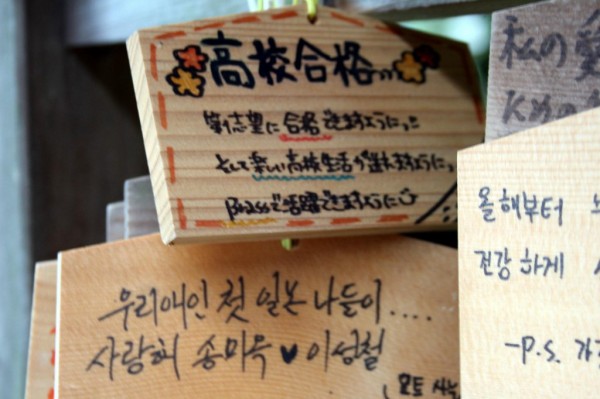 高校合格
第1志望に合格できますように
そして楽しい高校生活が送れますように
Brassで活躍できますように
私の愛
올해부터
건강하게
-P.S.
우리애인 첫 일본 나들이....
사랑해 송미옥♥이성철